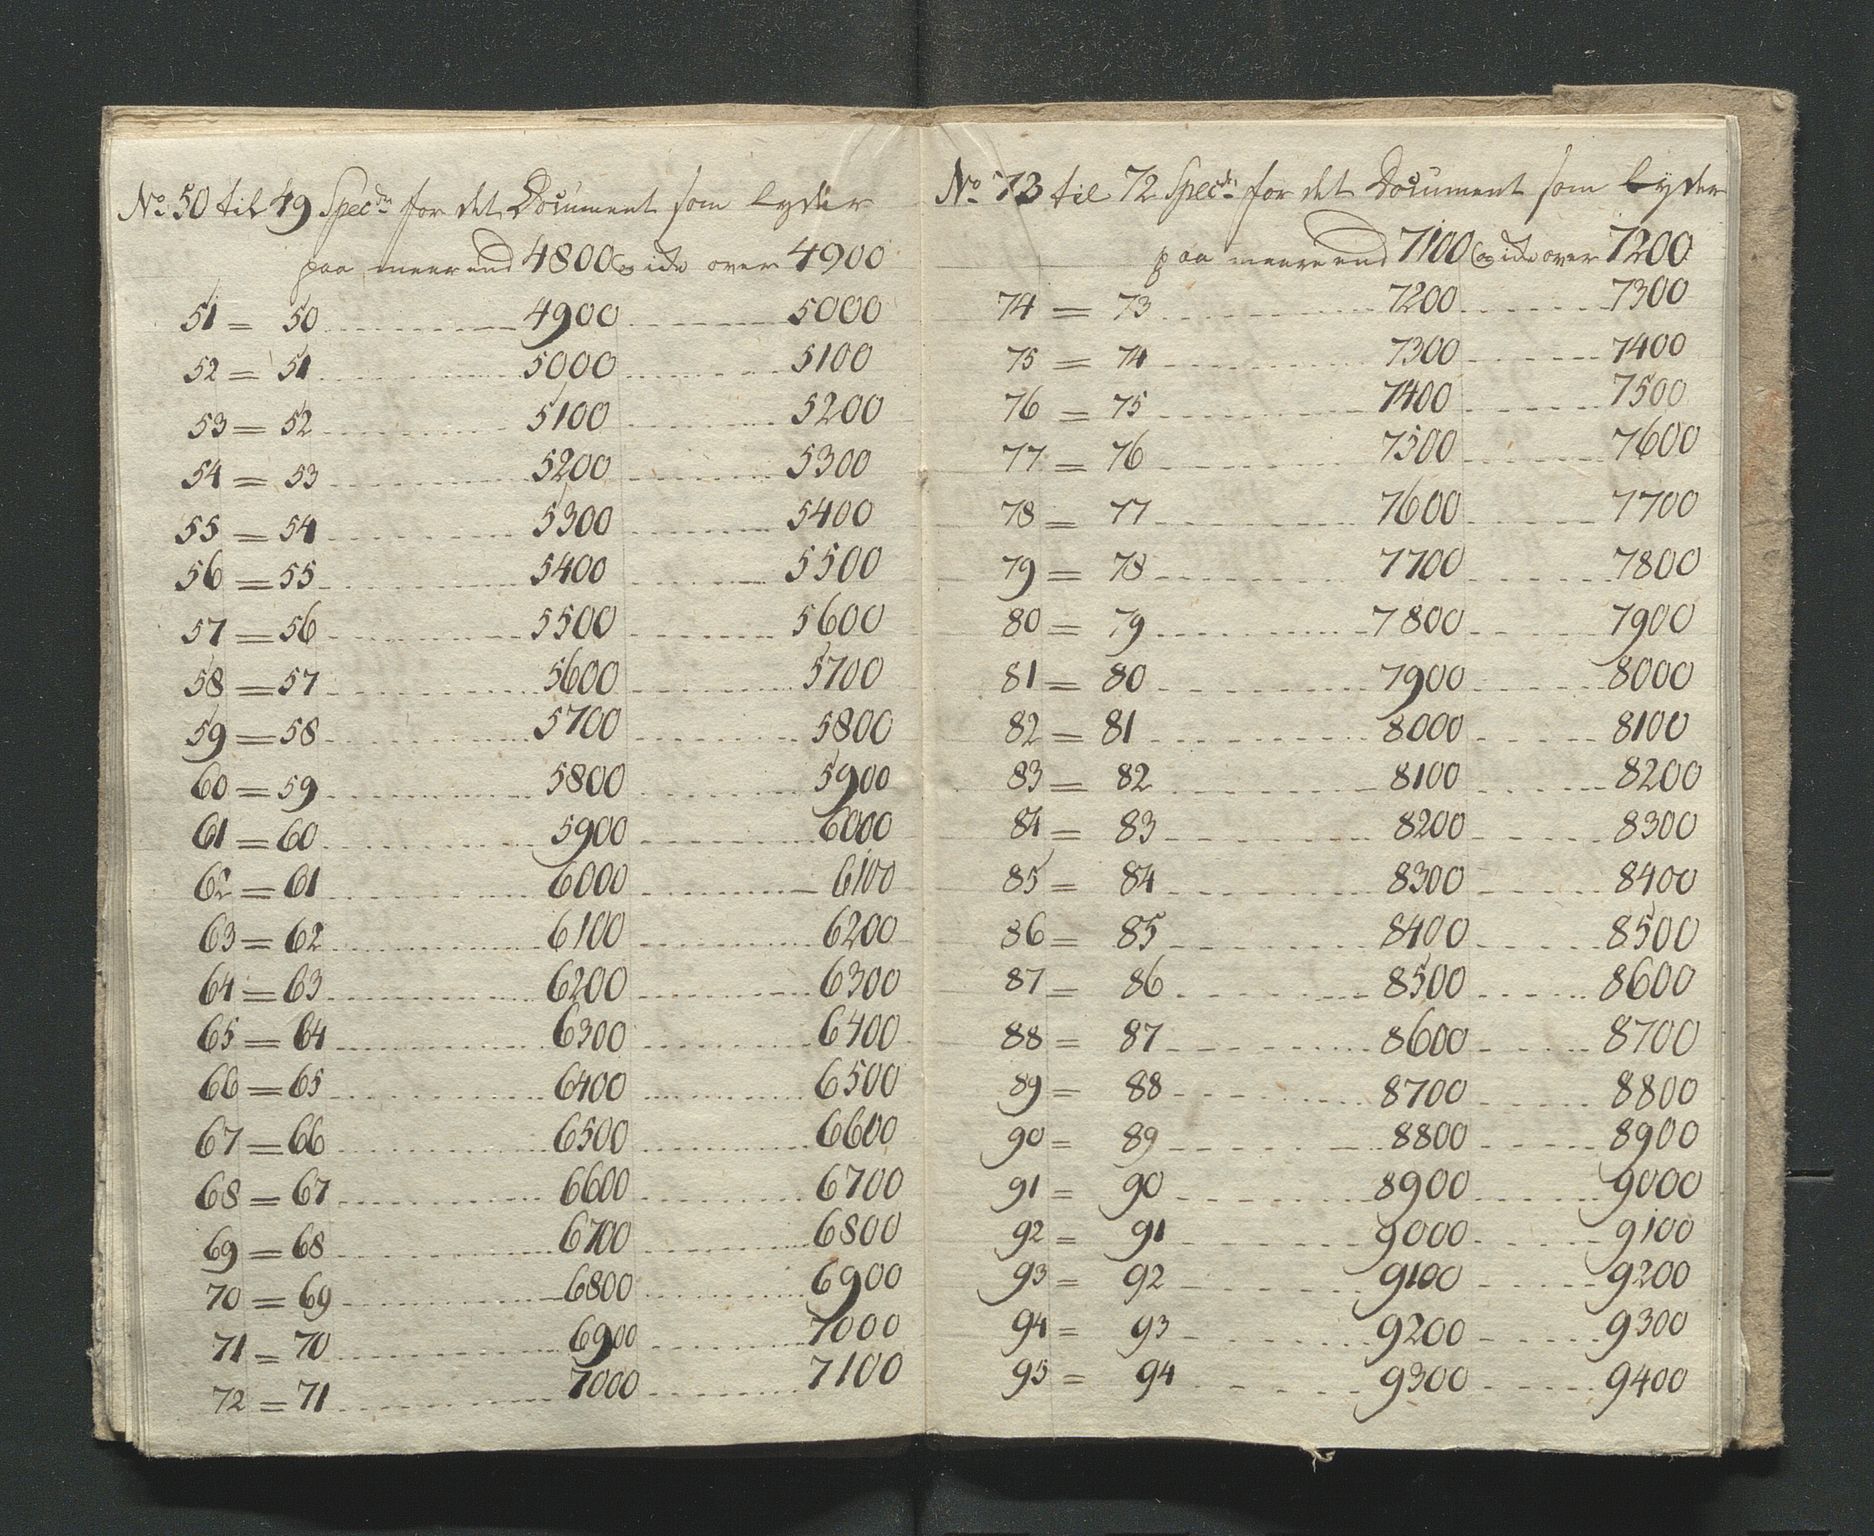 No. 50 til 49 Specd. for det Document som lyder
paa meer end 4800 og ikke over 4900
51 = 50 4900 5000
52 = 51 5000 5100
53 = 52 5100 5200
54 = 53 5200 5300
55 = 54 5300 5400
56 = 55 5400 5500
57 = 56 5500 5600
58 = 57 5600 5700
59 = 58 5700 5800
60 = 59 5800 5900
61 = 60 5900 6000
62 = 61 6000 6100
63 = 62 6100 6200
64 = 63 6200 6300
65 = 64 6300 6400
66 = 65 6400 6500
67 = 66 6500 6600
68 = 67 6600 6700
69 = 68 6700 6800
70 = 69 6800 6900
71 = 70 6900 7000
72 = 71 7000 7100
No. 73 til 72 Specd. for det Document som lyder
paa meere end 7100 og ikke over 7200
74 = 73 7200 7300
75 = 74 7300 7400
76 = 75 7400 7500
77 = 76 7500 7600
78 = 77 7600 7700
79 = 78 7700 7800
80 = 79 7800 7900
81 = 80 7900 8000
82 = 81 8000 8100
83 = 82 8100 8200
84 = 83 8200 8300
85 = 84 8300 8400
86 = 85 8400 8500
87 = 86 8500 8600
88 = 87 8600 8700
89 = 88 8700 8800
90 = 89 8800 8900
91 = 90 8900 9000
92 = 91 9000 9100
93 = 92 9100 9200
94 = 93 9200 9300
95 = 94 9300 9400